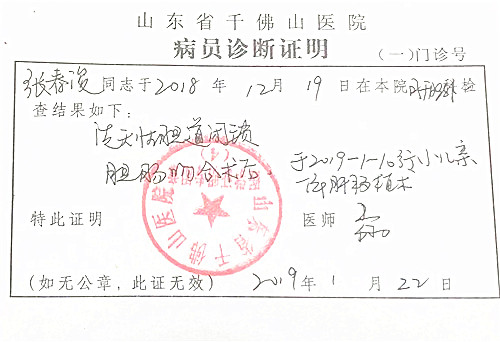 山东省千佛山医院
病员诊断证明
(一)门诊号
张春 同志于2018年12月19日在本院 检
查结果如下:
先天性胆道闭锁
胆肠吻合术后, 于2019-1-10行小儿亲
体肝移植术
特此证明 医师
(如无公章,此证无效) 2019年1月22日
山东省千佛山医院